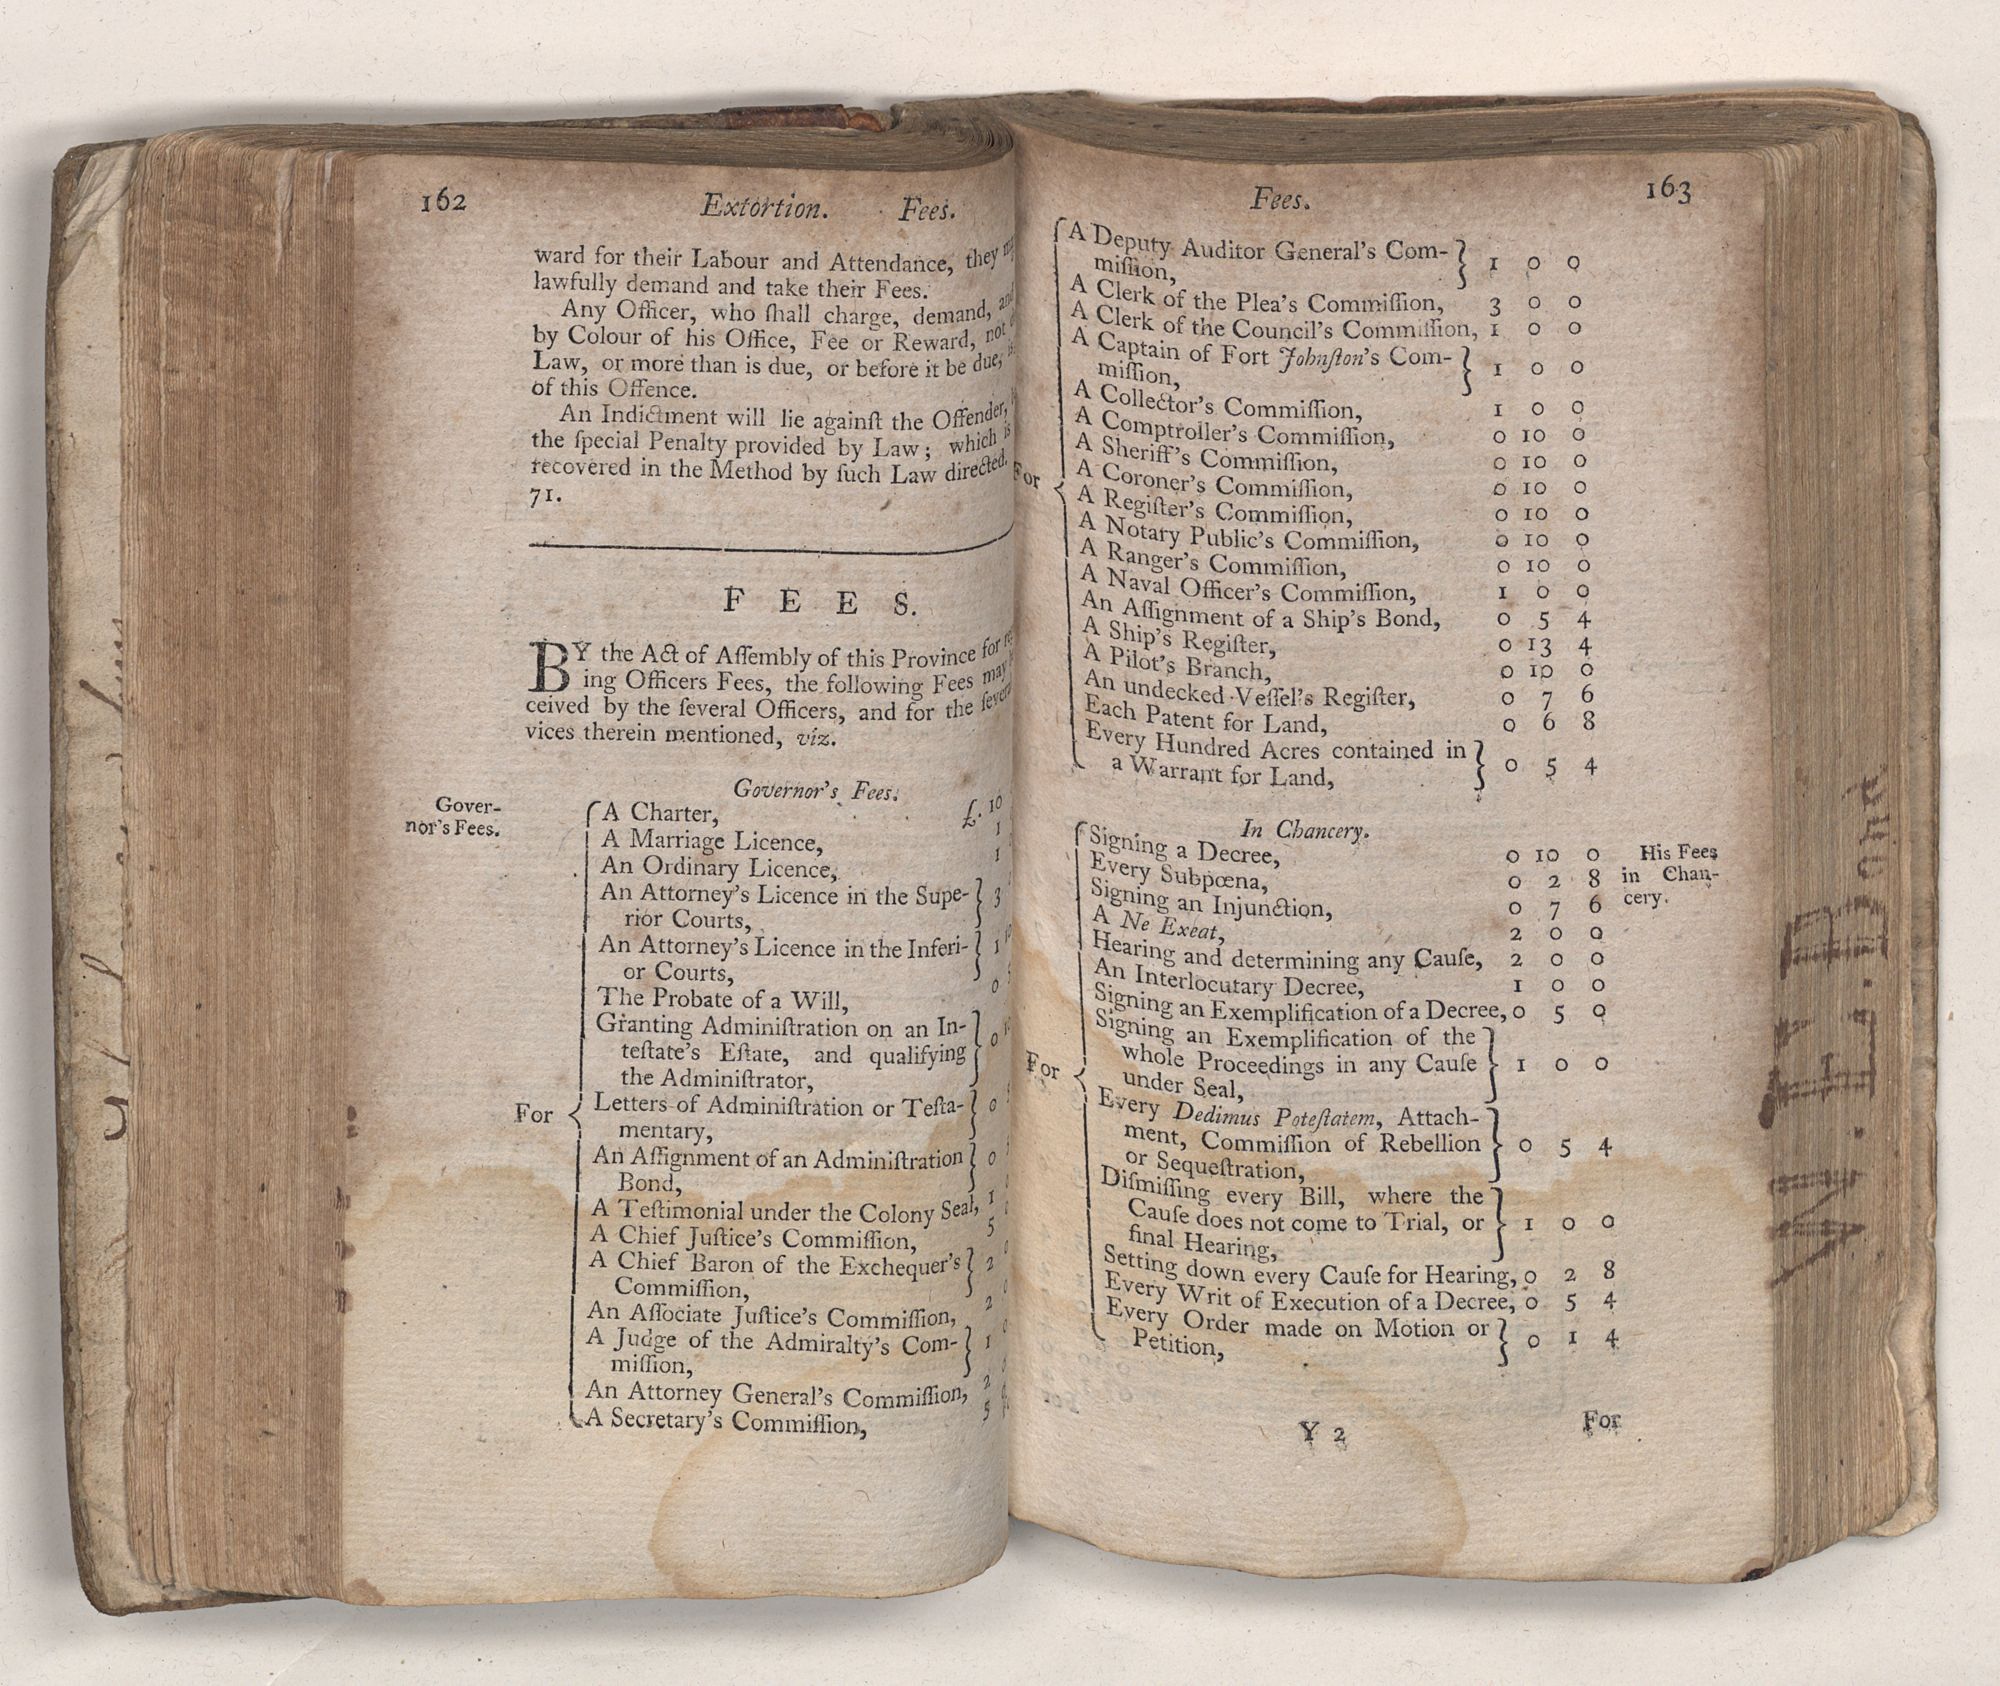 162
Extortion. Fees.
ward for their Labour and Attendance, they
lawfully demand and take their Fees.
Any Officer, who ſhall charge, demand, and
by Colour of his Office, Fee or Reward, not
Law, or more than is due, or before it be due,
of this Offence.
An Indictment will lie againſt the Offender,
the ſpecial Penalty provided by Law; which is
recovered in the Method by ſuch Law directed.
71.
FEES.
BY the Act of Aſſembly of this Province for
ing Officers Fees, the following Fees may
ceived by the ſeveral Officers, and for the
vices therein mentioned, viz.
Governor's Fees.
Gover-
nor's Fees.
For
A Charter, £. 10
A Marriage Licence, 1
An Ordinary Licence, 1
An Attorney's Licence in the Supe- 3
rior Courts,
An Attorney's Licence in the Inferi- 1
or Courts,
The Probate of a Will, 0
Granting Adminiſtration on an In-
teſtate's Eſtate, and qualifying 0
the Adminiſtrator,
Letters of Adminiſtration or Teſta- 0
mentary,
An Aſſignment of an Adminiſtration 0
Bond,
A Teſtimonial under the Colony Seal, 1
A Chief Juſtice's Commiſſion, 5
A Chief Baron of the Exchequer's 2
Commiſſion,
An Aſſociate Juſtice's Commiſſion, 2
A Judge of the Admiralty's Com- 1
miſſion,
An Attorney General's Commiſſion, 2
A Secretary's Commiſſion, 5
Fees.
163
For
A Deputy Auditor General's Com- 1 0 0
miſſion,
A Clerk of the Plea's Commiſſion, 3 0 0
A Clerk of the Council's Commiſſion, 1 0 0
A Captain of Fort Johnſton's Com- 1 0 0
miſſion,
A Collector's Commiſſion, 1 0 0
A Comptroller's Commiſſion, 0 10 0
A Sheriff's Commiſſion, 0 10 0
A Coroner's Commiſſion, 0 10 0
A Regiſter's Commiſſion, 0 10 0
A Notary Public's Commiſſion, 0 10 0
A Ranger's Commiſſion, 0 10 0
A Naval Officer's Commiſſion, 1 0 0
An Aſſignment of a Ship's Bond, 0 5 4
A Ship's Regiſter, 0 13 4
A Pilot's Branch, 0 10 0
An undecked Veſſel's Regiſter, 0 7 6
Each Patent for Land, 0 6 8
Every Hundred Acres contained in 0 5 4
a Warrant for Land,
In Chancery.
His Fees
in Chan-
cery.
For
Signing a Decree, 0 10 0
Every Subpœna, 0 2 8
Signing an Injunction, 0 7 6
A Ne Exeat, 2 0 0
Hearing and determining any Cauſe, 2 0 0
An Interlocutary Decree, 1 0 0
Signing an Exemplification of a Decree, 0 5 0
Signing an Exemplification of the
whole Proceedings in any Cauſe 1 0 0
under Seal,
Every Dedimus Poteſtatem, Attach-
ment, Commiſſion of Rebellion 0 5 4
or Sequeſtration,
Diſmiſſing every Bill, where the
Cauſe does not come to Trial, or 1 0 0
final Hearing,
Setting down every Cauſe for Hearing, 0 2 8
Every Writ of Execution of a Decree, 0 5 4
Every Order made on Motion or 0 1 4
Petition,
Y 2
For